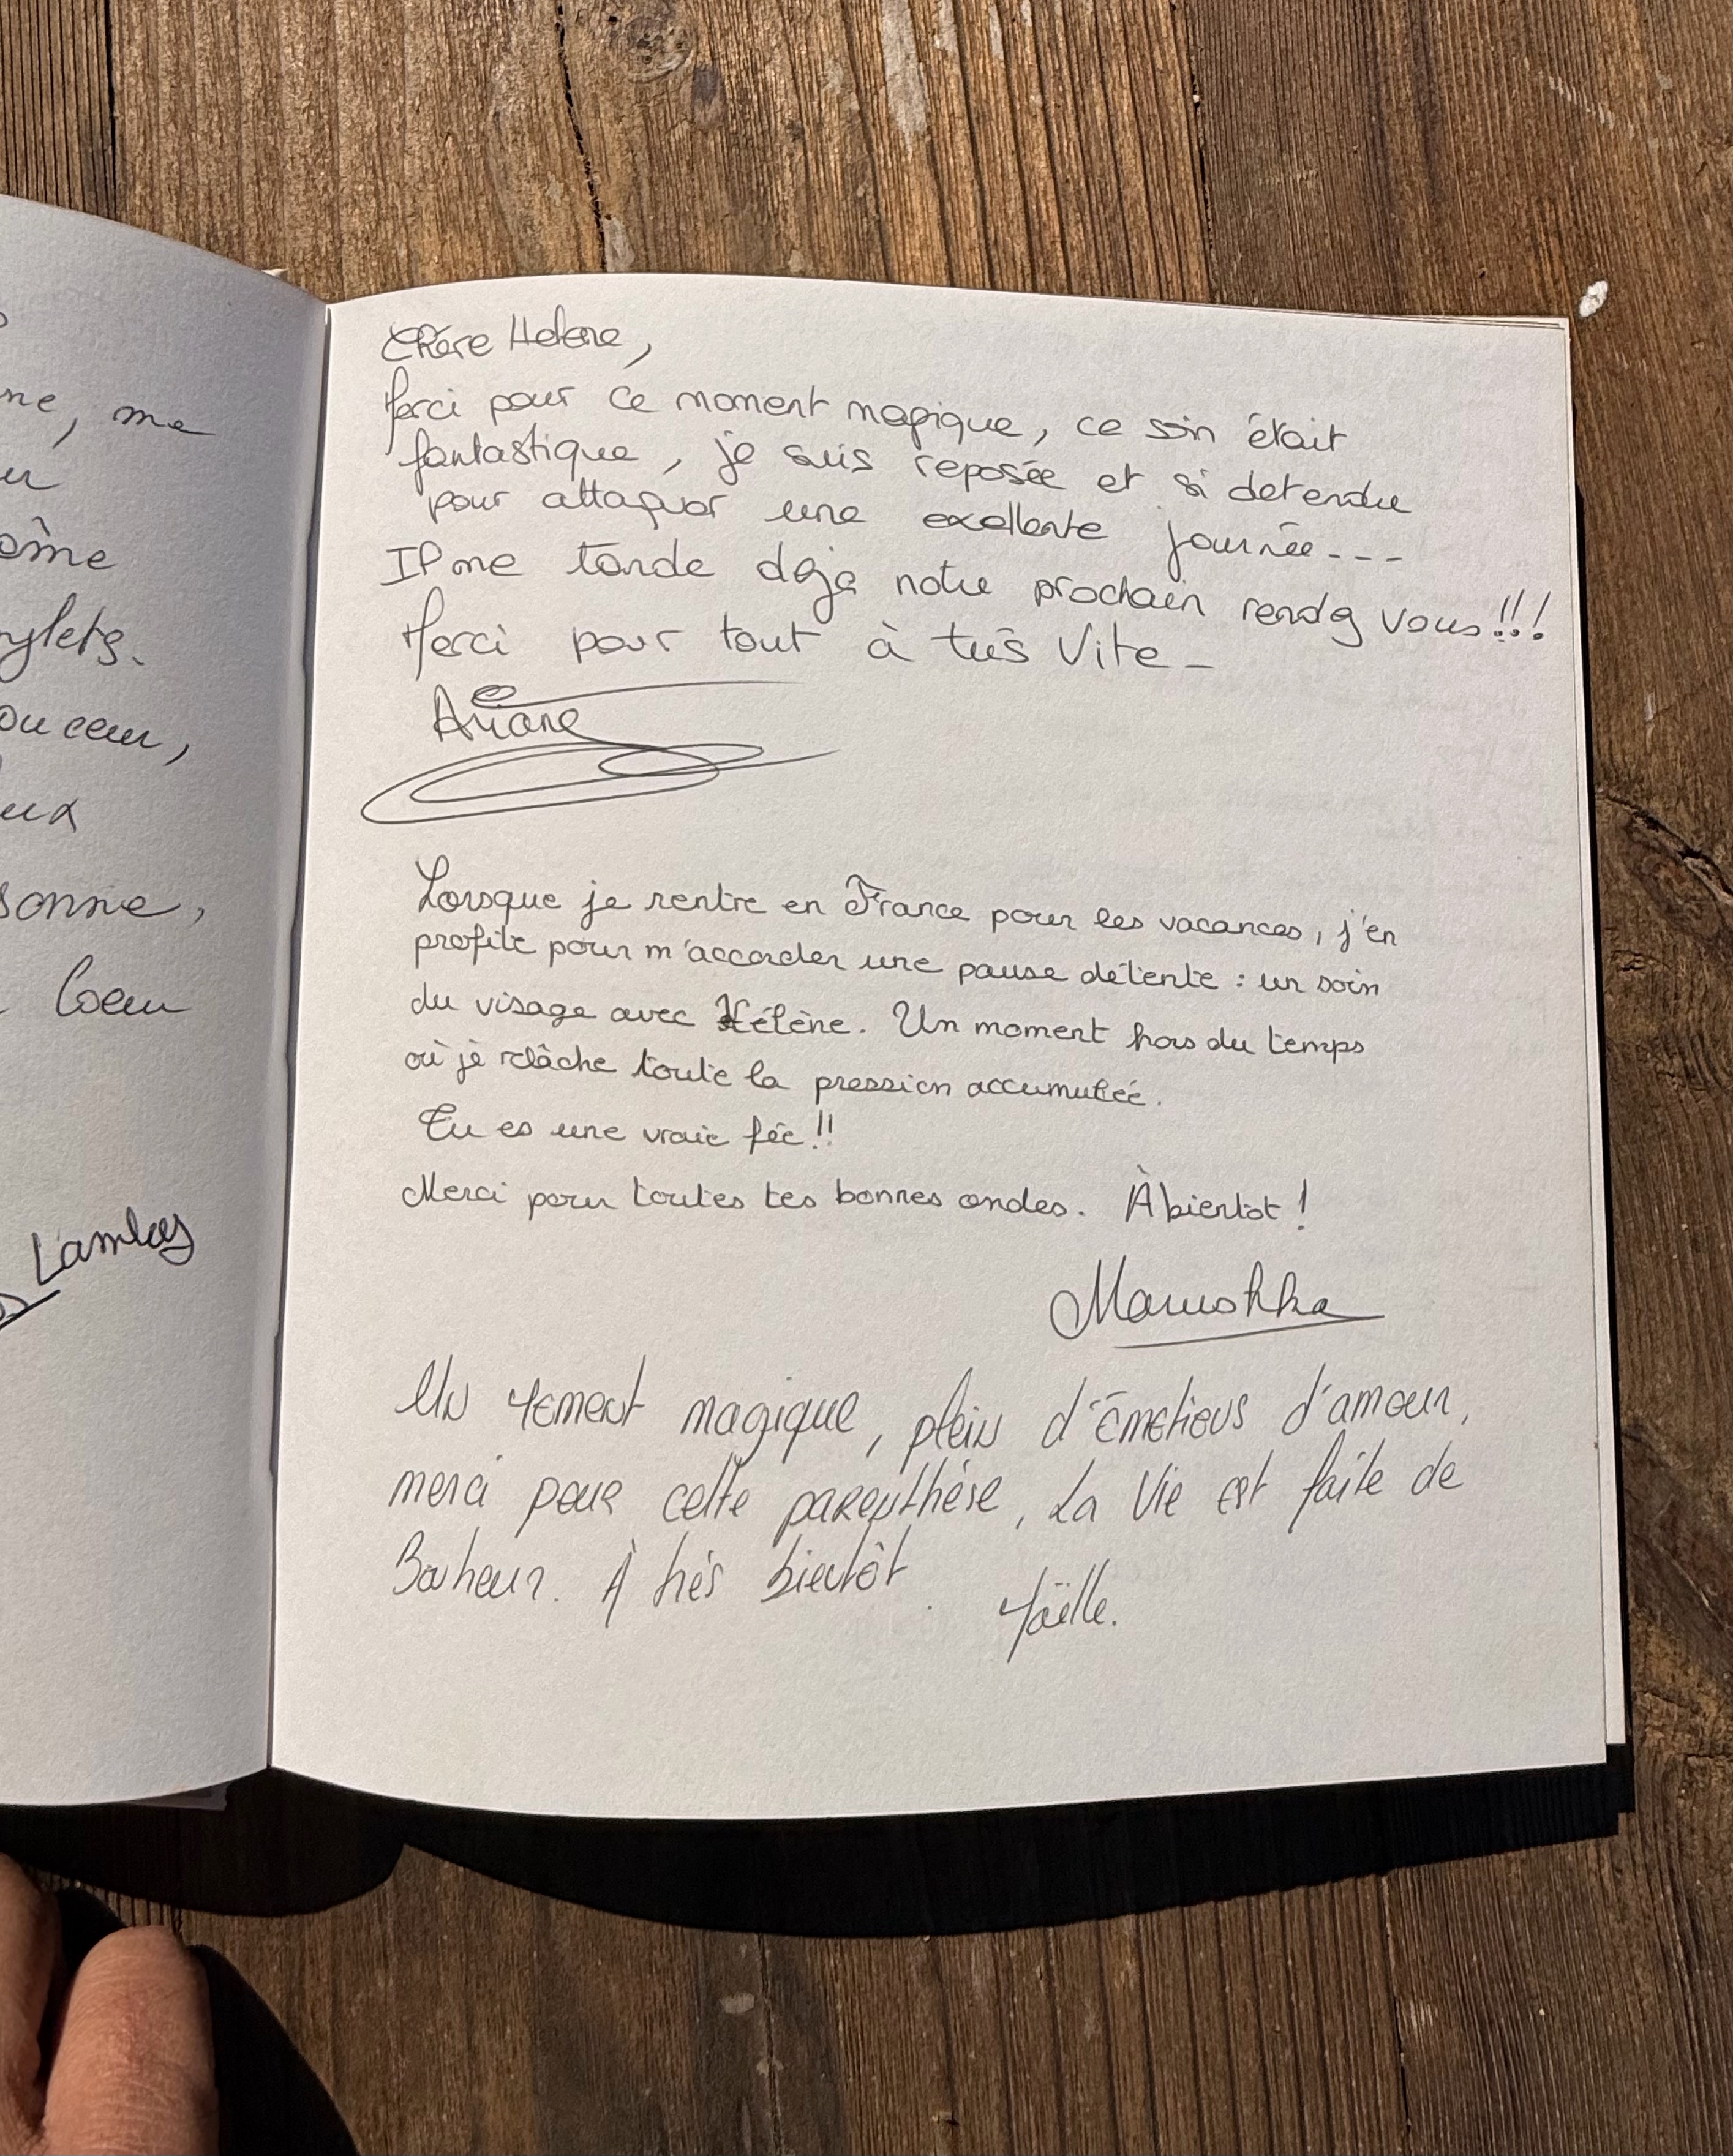 ne, me
ême
ylets.
ouceur,
eux
sonne,
Coeur
Lambay
Chère Helene,
Merci pour ce moment magique, ce soin était
fantastique, je suis reposée et si detendue
pour attaquer une exellente journée---
Il me tarde deja notre prochain rendez vous!!!
Merci pour tout à très Vite-
Ariane
Lorsque je rentre en France pour les vacances, j'en
profite pour m'accorder une pause détente : un soin
du visage avec Hélène. Un moment hors du temps
où je relâche toute la pression accumulée.
Tu es une vraie fée!!
Merci pour toutes tes bonnes ondes. À bientot !
Marushka
Un moment magique, plein d'émotions d'amour,
merci pour cette parenthèse, La Vie est faite de
Bonheur. À très bientôt.
Yaëlle.